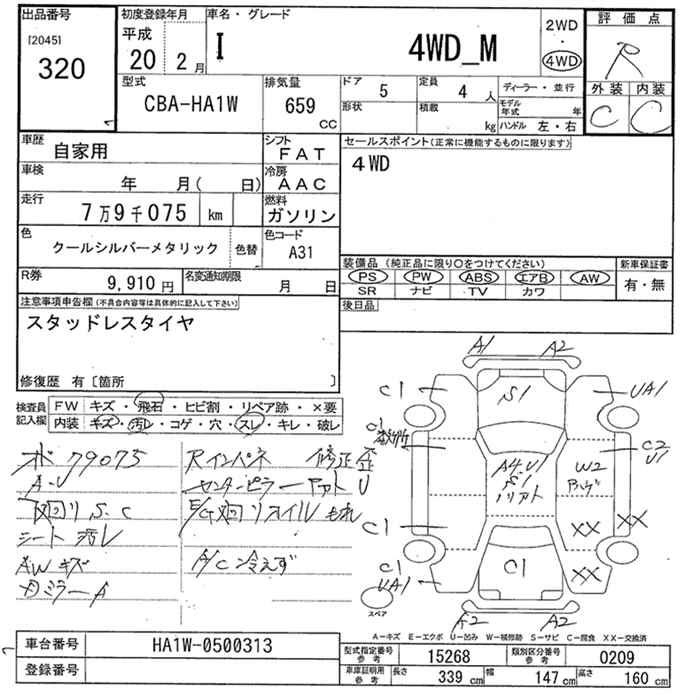 出品番号
[2045]
320
初度登録年月
平成
20 2月
車名・グレード
I 4WD_M
2WD
・
4WD
評価点
R
外装 内装
C C
型式
CBA-HA1W
排気量
659
CC
ドア 5
形状
定員 4 人
積載 kg
ディーラー・並行
モデル年式 年
ハンドル 左・右
車歴
自家用
シフト
FAT
車検
年 月( 日)
冷房
AAC
走行
7万9千075 km
燃料
ガソリン
色
クールシルバーメタリック
色替
色コード
A31
R券
9,910円
名変通知期限
月 日
セールスポイント(正常に機能するものに限ります)
4WD
装備品(純正品に限り○をつけてください)
PS PW ABS エアB AW
SR ナビ TV カワ
新車保証書
有・無
後日品
注意事項申告欄(不具合内容等は具体的に記入して下さい)
スタッドレスタイヤ
修復歴 有〔箇所 〕
検査員記入欄
FW キズ・飛石・ヒビ割・リペア跡・×要
内装 キズ・汚レ・コゲ・穴・スレ・キレ・破レ
ホ 79075
A・U
下廻り S.C
シート 汚レ
AW キズ
ミラーA
Rインパネ 修正歪
センターピラー U
E/G廻りオイルもれ
A/C冷えず
A1 A2
C1 S1 UA1
C1
C2
U1
A4.U1
S1
W2
C1 XX XX
C1
UA1
C1 XX
A2 A2
スペア
A－キズ E－エクボ U－凹み W－補修跡 S－サビ C－腐食 XX－交換済
車台番号 HA1W-0500313
登録番号
型式指定番号参考 15268
類別区分番号参考 0209
車庫証明用参考 長さ 339 cm 幅 147 cm 高さ 160 cm